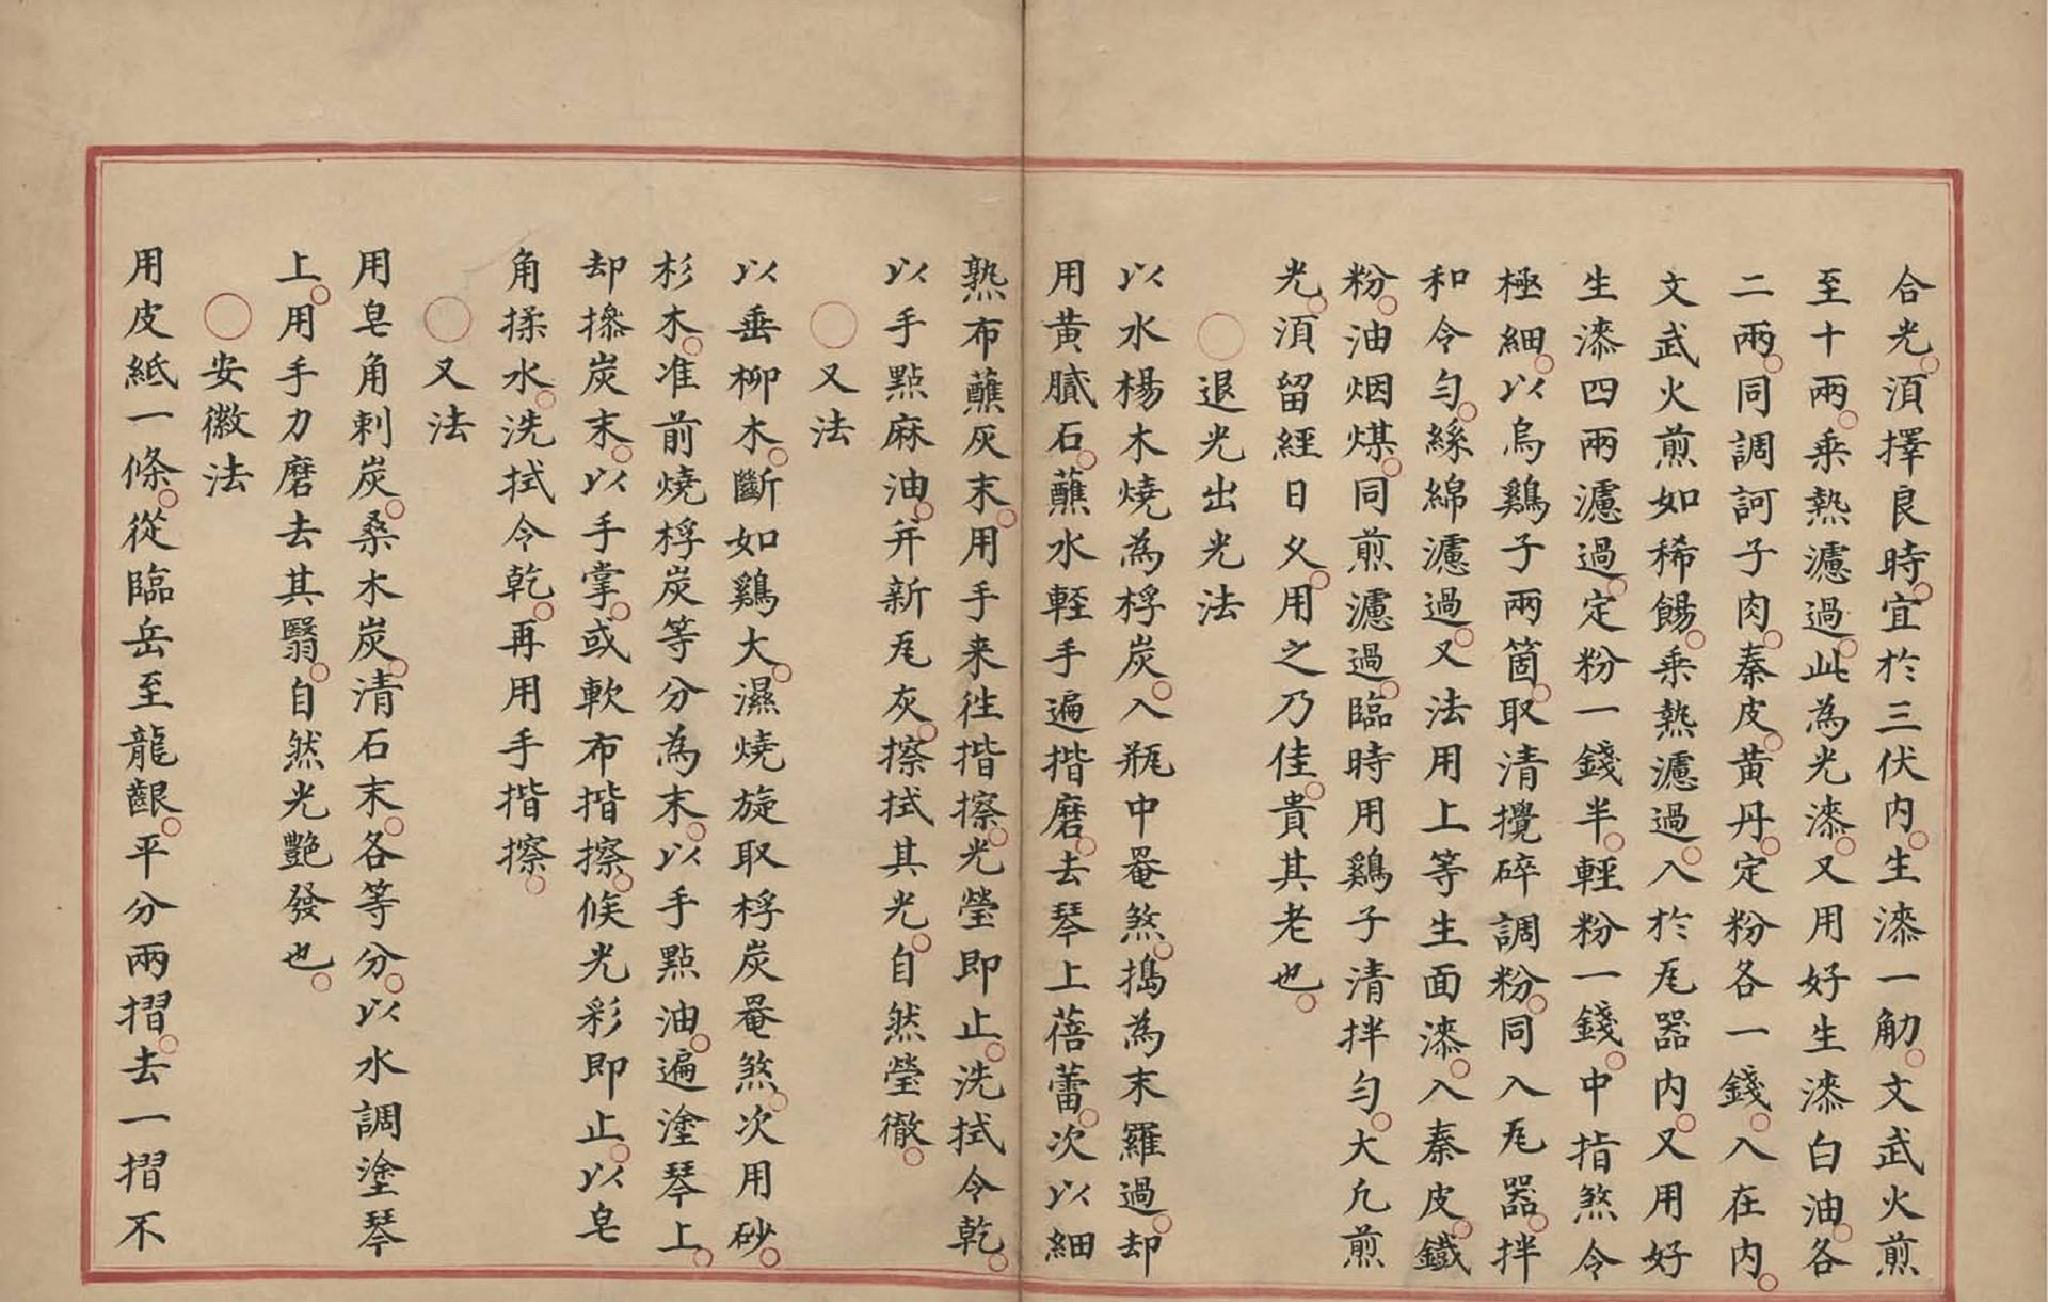 合光。湏擇良時。宜於三伏内。生漆一觔。文武火煎
至十兩。乗熱濾過。此為光漆。又用好生漆白油。各
二兩。同調訶子肉。秦皮。黄丹。定粉各一錢。入在内。
文武火煎如稀餳。乗熱濾過。入於瓦器内。又用好
生漆四兩濾過。定粉一錢半。輕粉一錢。中指煞令
極細。以烏鷄子兩箇。取清攪碎調粉。同入瓦器。拌
和令勻。絲綿濾過。又法用上等生面漆。入秦皮。鐵
粉。油烟煤。同煎濾過。臨時用鷄子清拌勻。大凢煎
光。湏留經日久。用之乃佳。貴其老也。
○退光出光法
以水楊木燒為桴炭。入瓶中罨煞。搗為末羅過。却
用黄膩石。蘸水輕手遍揩磨。去琴上蓓蕾。次以細
熟布蘸灰末。用手来徃揩擦。光瑩即止。洗拭令乾。
以手點麻油。并新瓦灰。擦拭其光。自然瑩徹。
○又法
以垂柳木。斷如鷄大。濕燒旋取桴炭罨煞。次用砂。
杉木。准前燒桴炭等分為末。以手點油。遍塗琴上。
却摻炭末。以手掌。或軟布揩擦。候光彩即止。以皂
角揉水。洗拭令乾。再用手揩擦。
○又法
用皂角刺炭。桑木炭。清石末。各等分。以水調塗琴
上。用手力磨去其翳。自然光艶發也。
○安徽法
用皮紙一條。從臨岳至龍齦。平分兩摺。去一摺不